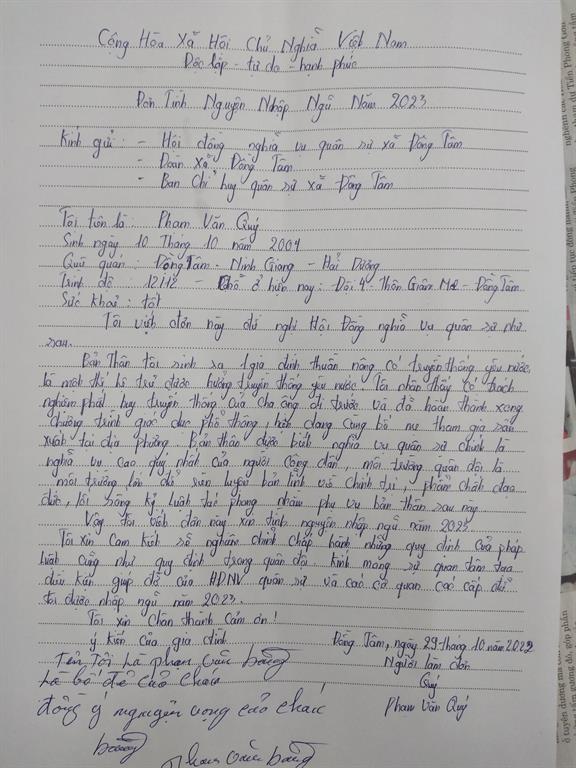 Cộng Hòa Xã Hội Chủ Nghĩa Việt Nam
Độc lập - tự do - hạnh phúc
Đơn Tình Nguyện Nhập Ngũ Năm 2023
Kính gửi: - Hội đồng nghĩa vụ quân sự xã Đồng Tâm
- Đoàn xã Đồng Tâm
- Ban Chỉ huy quân sự xã Đồng Tâm
Tôi tên là: Phạm Văn Quý
Sinh ngày 10 Tháng 10 năm 2004
Quê quán: Đồng Tâm - Ninh Giang - Hải Dương
Trình độ: 12/12 - Chỗ ở hiện nay: Đội 4 - Thôn Giâm Me - Đồng Tâm
Sức khoẻ: tốt
Tôi viết đơn này đề nghị Hội Đồng nghĩa vụ quân sự như
sau.
Bản Thân tôi sinh ra 1 gia đình thuần nông có truyền thống yêu nước,
là một thế hệ trẻ được hưởng truyền thống yêu nước. Tôi nhận thấy có trách
nghiệm phát huy truyền thống của cha ông đi trước và đã hoàn thành xong
chương trình giáo dục phổ thông, hiện đang cùng bố mẹ tham gia sản
xuất tại địa phương. Bản thân được biết nghĩa vụ quân sự chính là
nghĩa vụ cao quý nhất của người công dân, môi trường quân đội là
môi trường lớn để rèn luyện bản lĩnh về chính trị, phẩm chất đạo
đức, lối sống kỷ luật tác phong nhằm phụ vụ bản thân sau này
Vậy tôi viết đơn này xin tình nguyện nhập ngũ năm 2023.
Tôi xin Cam kết sẽ nghiêm chỉnh chấp hành những quy định của pháp
luật cũng như quy định trong quân đội. Kính mong sự quan tâm tạo
điều kiện giúp đỡ của HĐNV quân sự và các cơ quan các cấp để
tôi được nhập ngũ năm 2023.
Tôi xin chân thành cảm ơn!
ý kiến của gia đình
Đồng Tâm, ngày 29 tháng 10 năm 2022
Tên Tôi là phạm văn bằng
Người làm đơn
là bố đẻ của cháu
Quý
đồng ý nguyện vọng của cháu
Phạm Văn Quý
bằng
phạm văn bằng